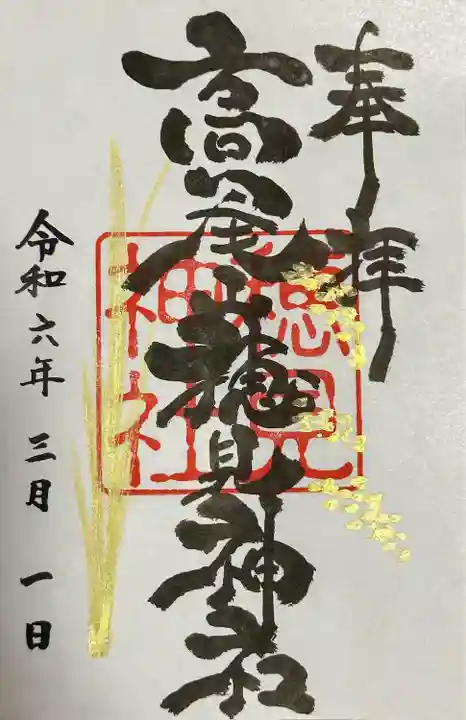 奉拝
高尾山穂見神社
令和六年三月一日
穂見
神社